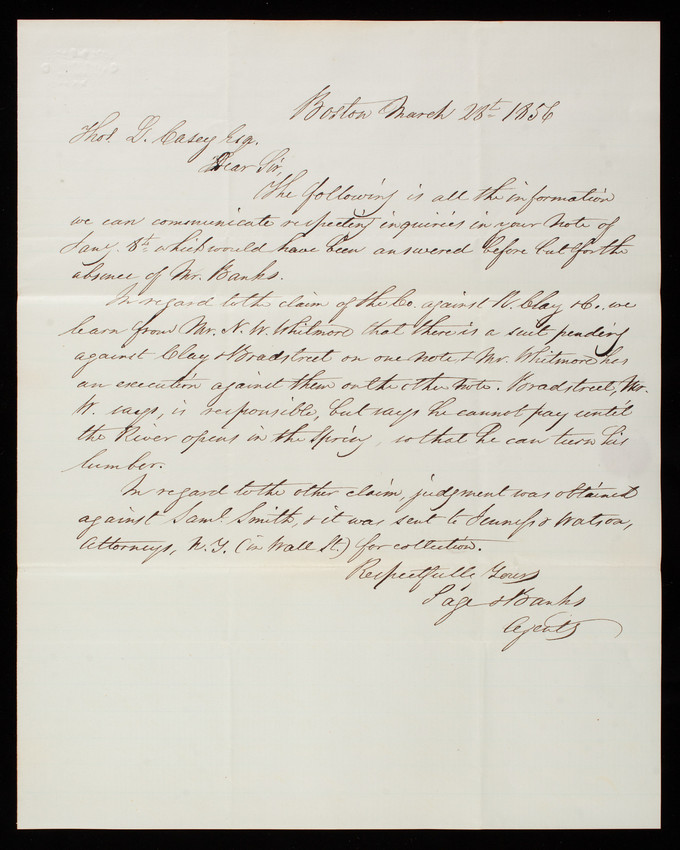 Boston March 28th 1856
Thos. L. Casey Esq.
Dear Sir,
The following is all the information
we can communicate respecting inquiries in your note of
Jany. 8th which would have been answered before but for the
absence of Mr. Banks.
In regard to the claim of the Co. against R. Clay & Co. we
learn from Mr. N. W. Whitmore that there is a suit pending
against Clay & Bradstreet on one note & Mr. Whitmore has
an execution against them on the other note. Bradstreet, Mr.
W. says, is responsible, but says he cannot pay until
the River opens in the Spring, so that he can turn his
lumber.
In regard to the other claim, judgment was obtained
against Saml. Smith, & it was sent to Jenness & Watson,
Attorneys, N.Y. (in Wall St.) for collection.
Respectfully Yours
Page & Banks
Agents